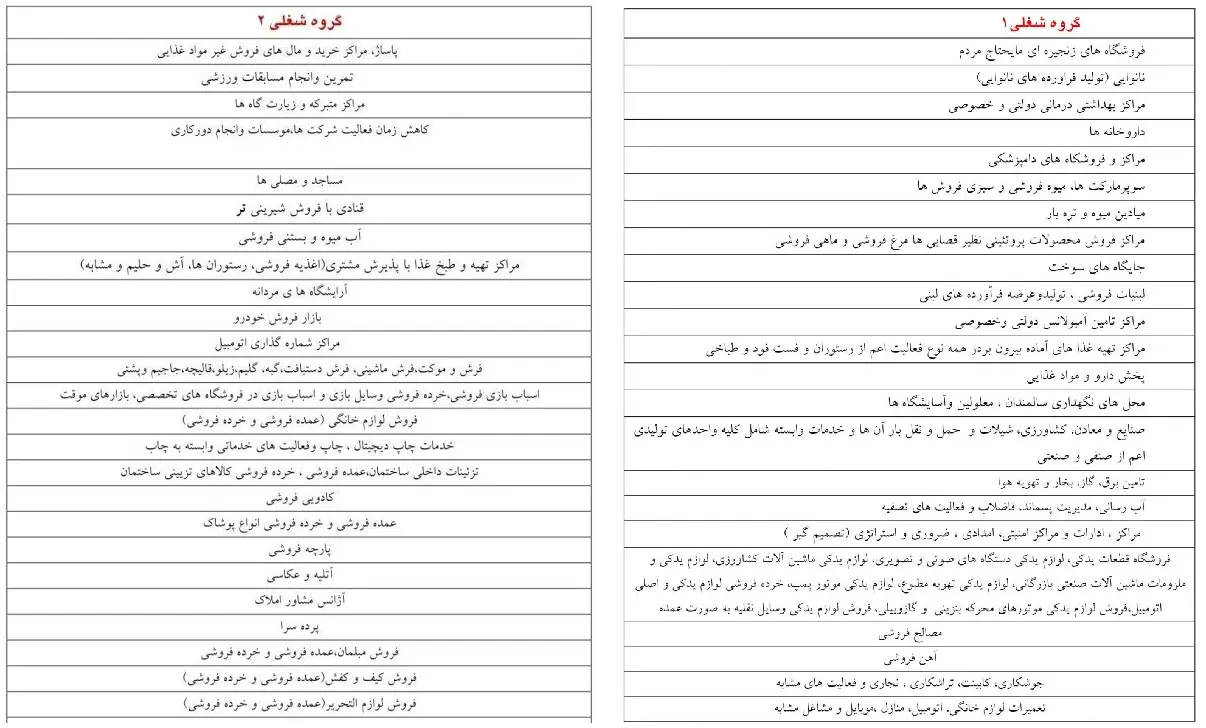 گروه شغلی ۱
فروشگاه های زنجیره ای مایحتاج مردم
نانوایی (تولید فراورده های نانوایی)
مراکز بهداشتی درمانی دولتی و خصوصی
داروخانه ها
مراکز و فروشکاه های دامپزشکی
سوپرمارکت ها، میوه فروشی و سبزی فروش ها
میادین میوه و تره بار
مراکز فروش محصولات پروتئینی نظیر قصابی ها مرغ فروشی و ماهی فروشی
جایگاه های سوخت
لبنیات فروشی ، تولیدوعرضه فرآورده های لبنی
مراکز تامین آمبولانس دولتی وخصوصی
مراکز تهیه غذا های آماده بیرون بردر همه نوع فعالیت اعم از رستوران و فست فود و طباخی
پخش دارو و مواد غذایی
محل های نگهداری سالمندان ، معلولین وآسایشگاه ها
صنایع و معادن، کشاورزی، شیلات و حمل و نقل بار آن ها و خدمات وابسته شامل کلیه واحدهای تولیدی
اعم از صنفی و صنعتی
تامین برق، گاز، بخار و تهویه هوا
آب رسانی، مدیریت پسماند، فاضلاب و فعالیت های تصفیه
مراکز ، ادارات و مراکز امنیتی، امدادی ، ضروری و استراتژی (تصمیم گیر )
فروشگاه قطعات یدکی، لوازم یدکی دستگاه های صوتی و تصویری، لوازم یدکی ماشین آلات کشاورزی، لوازم یدکی و
ملزومات ماشین آلات صنعتی بازرگانی، لوازم یدکی تهویه مطبوع، لوازم یدکی موتور پمپ، خرده فروشی لوازم یدکی و اصلی
اتومبیل،فروش لوازم یدکی موتورهای محرکه بنزینی و گازوییلی، فروش لوازم یدکی وسایل نقلیه به صورت عمده
مصالح فروشی
آهن فروشی
جوشکاری، کابینت، تراشکاری ، نجاری و فعالیت های مشابه
تعمیرات لوازم خانگی، اتومبیل، منازل ،موبایل و مشاغل مشابه
گروه شغلی ۲
پاساژ، مراکز خرید و مال های فروش غیر مواد غذایی
تمرین وانجام مسابقات ورزشی
مراکز متبرکه و زیارت گاه ها
کاهش زمان فعالیت شرکت ها،موسسات وانجام دورکاری
مساجد و مصلی ها
قنادی با فروش شیرینی تر
آب میوه و بستنی فروشی
مراکز تهیه و طبخ غذا با پذیرش مشتری(اغذیه فروشی، رستوران ها، آش و حلیم و مشابه)
آرایشگاه ها ی مردانه
بازار فروش خودرو
مراکز شماره گذاری اتومبیل
فرش و موکت،فرش ماشینی، فرش دستبافت،گبه، گلیم،زیلو،قالیچه،جاجیم وپشتی
اسباب بازی فروشی،خرده فروشی وسایل بازی و اسباب بازی در فروشگاه های تخصصی، بازارهای موقت
فروش لوازم خانگی (عمده فروشی و خرده فروشی)
خدمات چاپ دیجیتال ، چاپ وفعالیت های خدماتی وابسته به چاپ
تزئینات داخلی ساختمان،عمده فروشی ، خرده فروشی کالاهای تزیینی ساختمان
کادویی فروشی
عمده فروشی و خرده فروشی انواع پوشاک
پارچه فروشی
آتلیه و عکاسی
آژانس مشاور املاک
پرده سرا
فروش مبلمان،عمده فروشی و خرده فروشی
فروش کیف و کفش(عمده فروشی و خرده فروشی)
فروش لوازم التحریر(عمده فروشی و خرده فروشی)